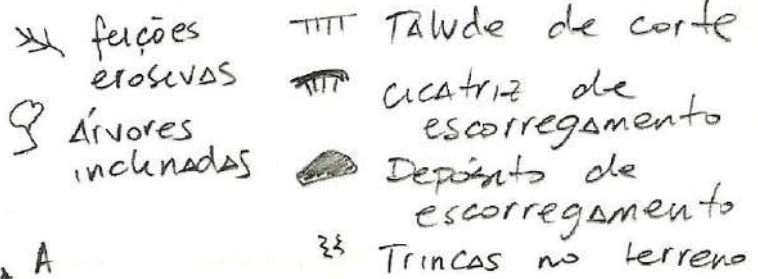 feições
erosivas
Árvores
inclinadas
Talude de corte
cicatriz de
escorregamento
Depósito de
escorregamento
Trincas no terreno
A